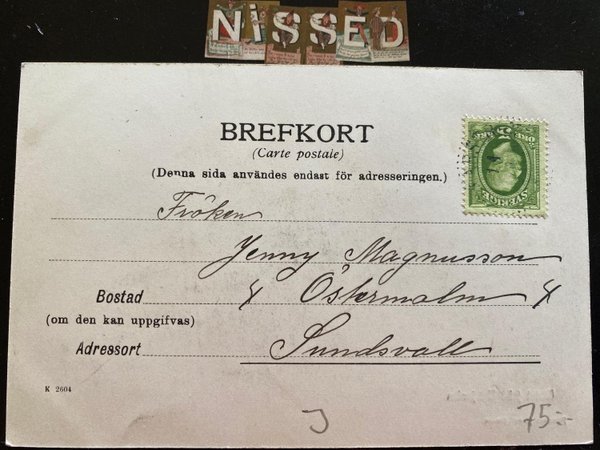 NiSSED
BREFKORT
(Carte postale)
(Denna sida användes endast för adresseringen.)
Fröken
Jenny Magnusson
Bostad Östermalm
(om den kan uppgifvas)
Adressort Sundsvall
K 2604
75:-
SVERIGE
5